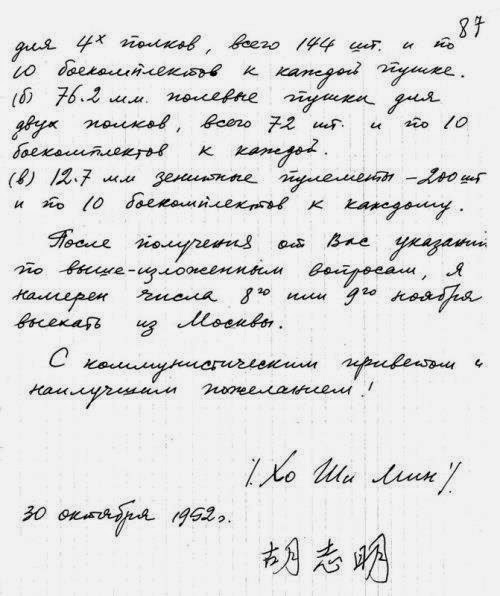 87
для 4х полков, всего 144 шт. и по
10 боекомплектов к каждой пушке.
(б) 76.2 мм. полевые пушки для
двух полков, всего 72 шт. и по 10
боекомплектов к каждой.
(в) 12.7 мм зенитные пулеметы – 200 шт
и по 10 боекомплектов к каждому.
После получения от Вас указаний
по выше-изложенным вопросам, я
намерен числа 8го или 9го ноября
выехать из Москвы.
С коммунистическим приветом и
наилучшим пожеланием!
/. Хо Ши Мин ./.
30 октября 1952 г.
胡志明